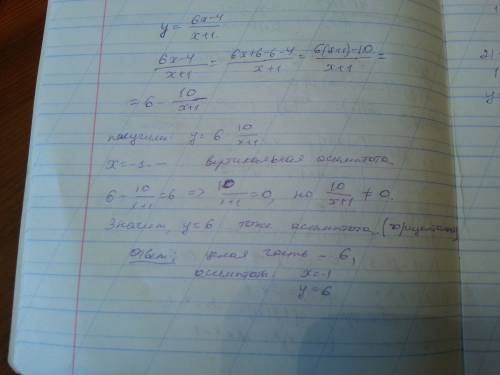 y = (6x-4)/(x+1)
(6x-4)/(x+1) = (6x+6-6-4)/(x+1) = (6(x+1)-10)/(x+1) =
= 6 - 10/(x+1)
получим: y = 6 - 10/(x+1)
x = -1 — вертикальная асимптота
6 - 10/(x+1) = 6 => 10/(x+1) = 0, но 10/(x+1) ≠ 0.
Значит, y=6 тоже асимптота (горизонтальная)
Ответ: целая часть - 6,
асимптоты x=-1
y=6
2)
1
y